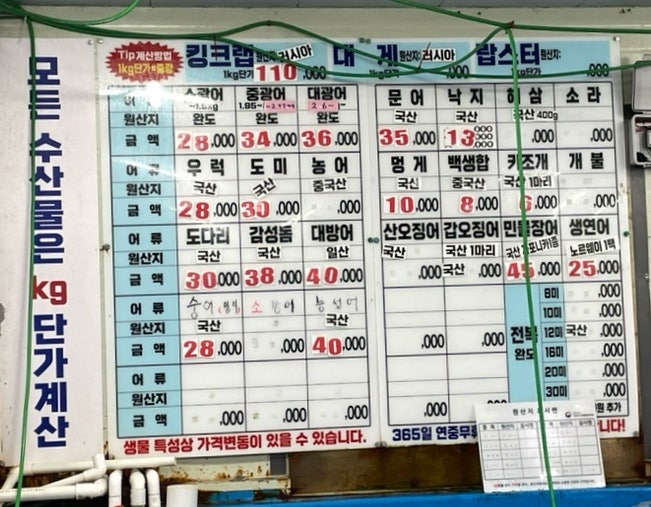 모든 수산물은 kg 단가계산
Tip 계산방법
1kg단가*중량
킹크랩 원산지:러시아
1kg단가 110,000
대 게 원산지:러시아
1kg단가 ,000
랍스터 원산지:
kg단가 ,000
어 류 소광어 중광어 대광어
원산지 완도 완도 완도
금 액 28,000 34,000 36,000
어 류 우럭 도미 농어
원산지 국산 국산 중국산
금 액 28,000 30,000 ,000
어 류 도다리 감성돔 대방어
원산지 국산 국산 일산
금 액 30,000 38,000 40,000
어 류 숭어 소 방어 능성어
원산지 국산 국산
금 액 28,000 ,000 40,000
어 류
원산지
금 액 ,000 ,000 ,000
생물 특성상 가격변동이 있을 수 있습니다.
문 어 낙 지 해 삼 소 라
국산 국산 국산 400g
35,000 13,000 ,000 ,000
멍 게 백생합 키조개 개 불
국산 중국산 국산 1마리
10,000 8,000 6,000 ,000
산오징어 갑오징어 민물장어 생연어
국산 국산 1마리 노르웨이 1팩
,000 국산 ,000 45,000 25,000
전복
완도
8미 ,000
10미 ,000
12미 국산 ,000
16미 ,000
20미 ,000
30미 ,000
,000 ,000
,000
추가
365일 연중무휴